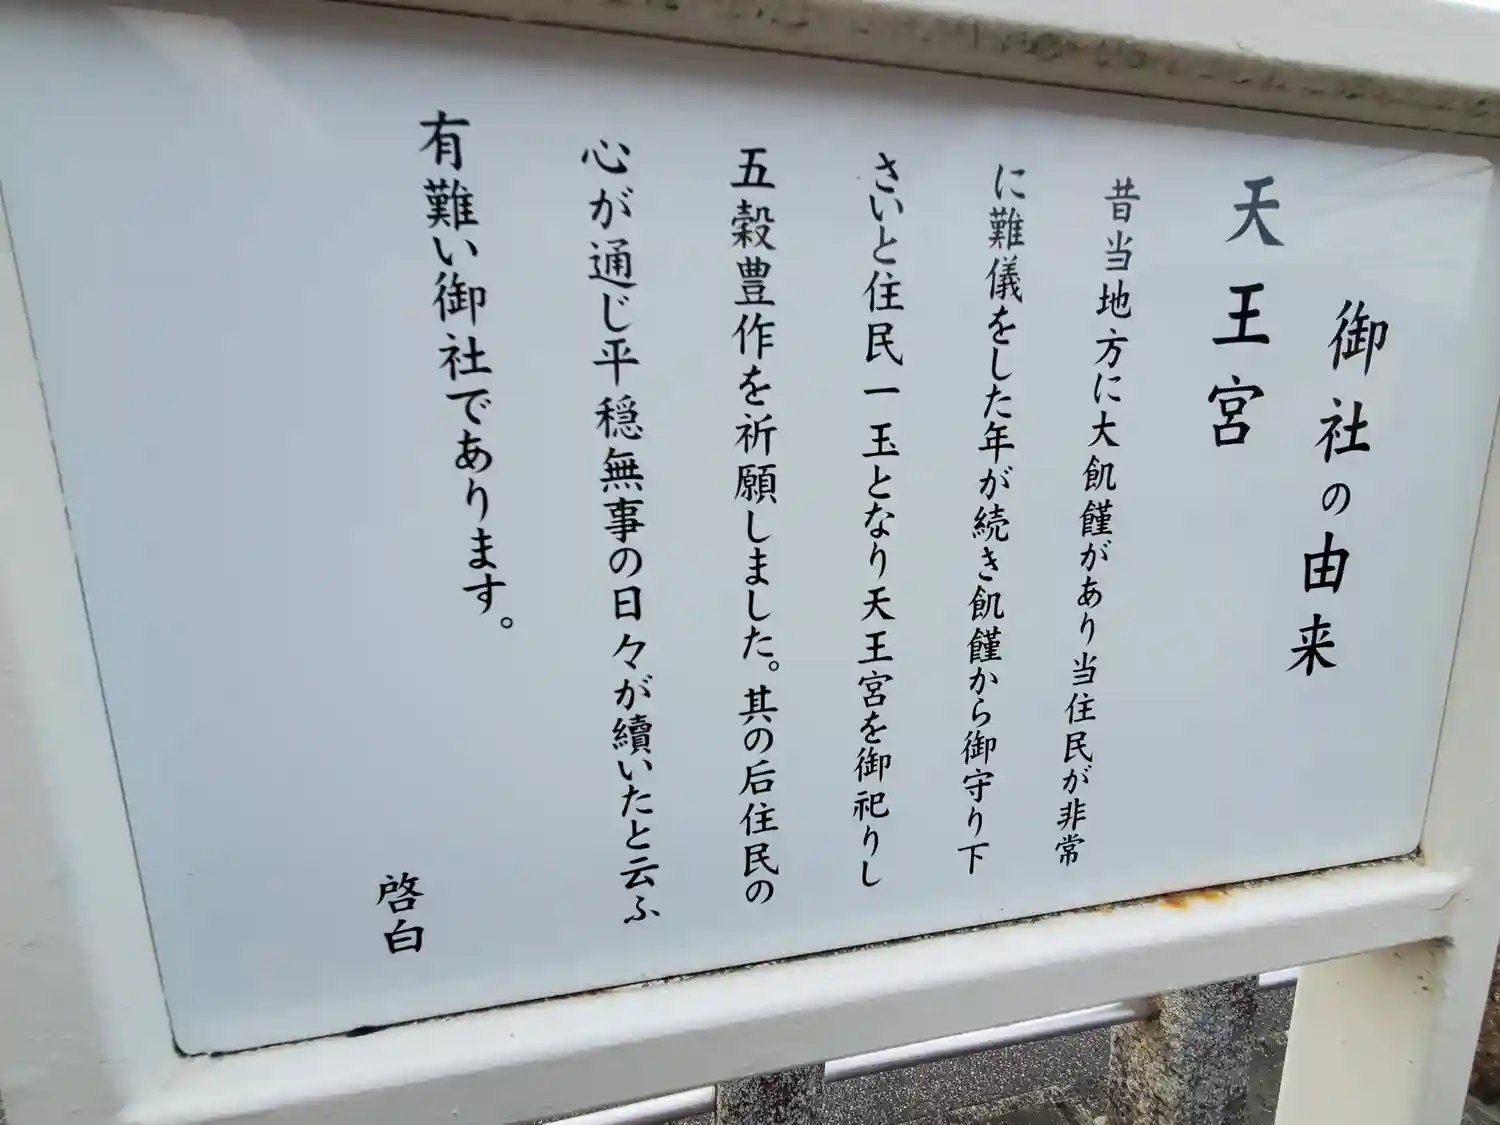 御社の由来
天王宮
昔当地方に大飢饉があり当住民が非常
に難儀をした年が続き飢饉から御守り下
さいと住民一玉となり天王宮を御祀りし
五穀豊作を祈願しました。其の后住民の
心が通じ平穏無事の日々が續いたと云ふ
有難い御社であります。
啓白